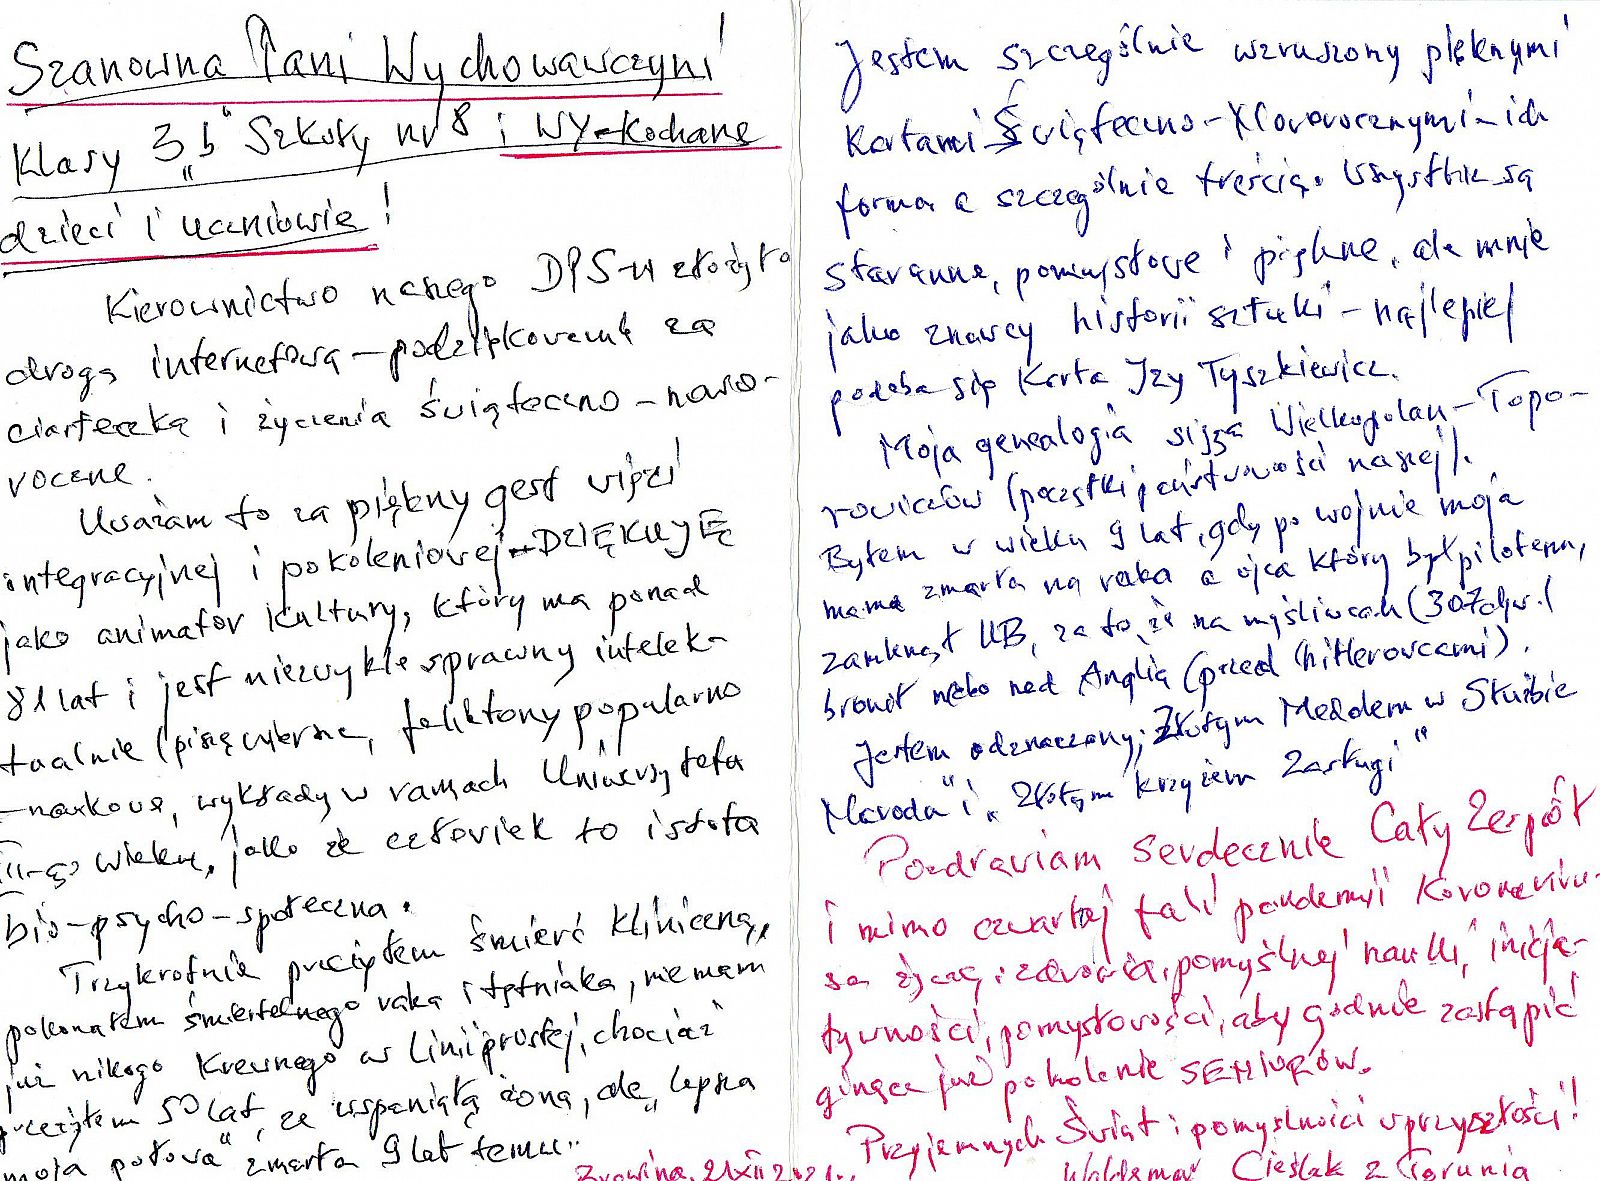 Szanowna Pani Wychowawczyni
klasy 3 „b" Szkoły nr 8 i WY-kochane
dzieci i uczniowie!
Kierownictwo naszego DPS-u złożyło
drogą internetową – podziękowanie za
ciasteczka i życzenia świąteczno – nowo-
roczne.
Uważam to za piękny gest więzi
integracyjnej i pokoleniowej – DZIĘKUJĘ
jako animator kultury, który ma ponad
81 lat i jest niezwykle sprawny intelek-
tualnie (piszę wiersze, felietony popularno
–naukowe, wykłady w ramach Uniwersytetu
III-go wieku, jako że człowiek to istota
bio-psycho-społeczna.
Trzykrotnie przeżyłem śmierć kliniczną,
pokonałem śmiertelnego raka i tętniaka, nie mam
już nikogo krewnego w linii prostej, chociaż
przeżyłem 50 lat ze wspaniałą żoną, ale „lepsza
moja połowa" zmarła 9 lat temu..
21 XII 2021 r.
Jestem szczególnie wzruszony pięknymi
kartami Świąteczno-Noworocznymi – ich
forma a szczególnie treścią. Wszystkie są
staranne, pomysłowe i piękne, ale mnie
jako znawcy historii sztuki – najlepiej
podoba się karta Izy Tyszkiewicz.
Moja genealogia sięga Wielkopolan – Topo-
rowiczów (początki państwowości naszej).
Byłem w wieku 9 lat, gdy po wojnie moja
mama zmarła na raka a ojca który był pilotem,
zamknął UB, za to, że na myśliwcach (307 dyw.)
bronił nieba nad Anglią (przed hitlerowcami).
Jestem odznaczony; Złotym Medalem w Służbie
Narodu" i „Złotym krzyżem Zasługi"
Pozdrawiam serdecznie Cały Zespół
i mimo czwartej fali pandemii koronawiru-
sa życzę; zdrowia, pomyślnej nauki, inicja-
tywności, pomysłowości, aby godnie zastąpić
ginące już pokolenie SENIORÓW.
Przyjemnych Świąt i pomyślności w przyszłości!
Waldemar Cieślak z Torunia